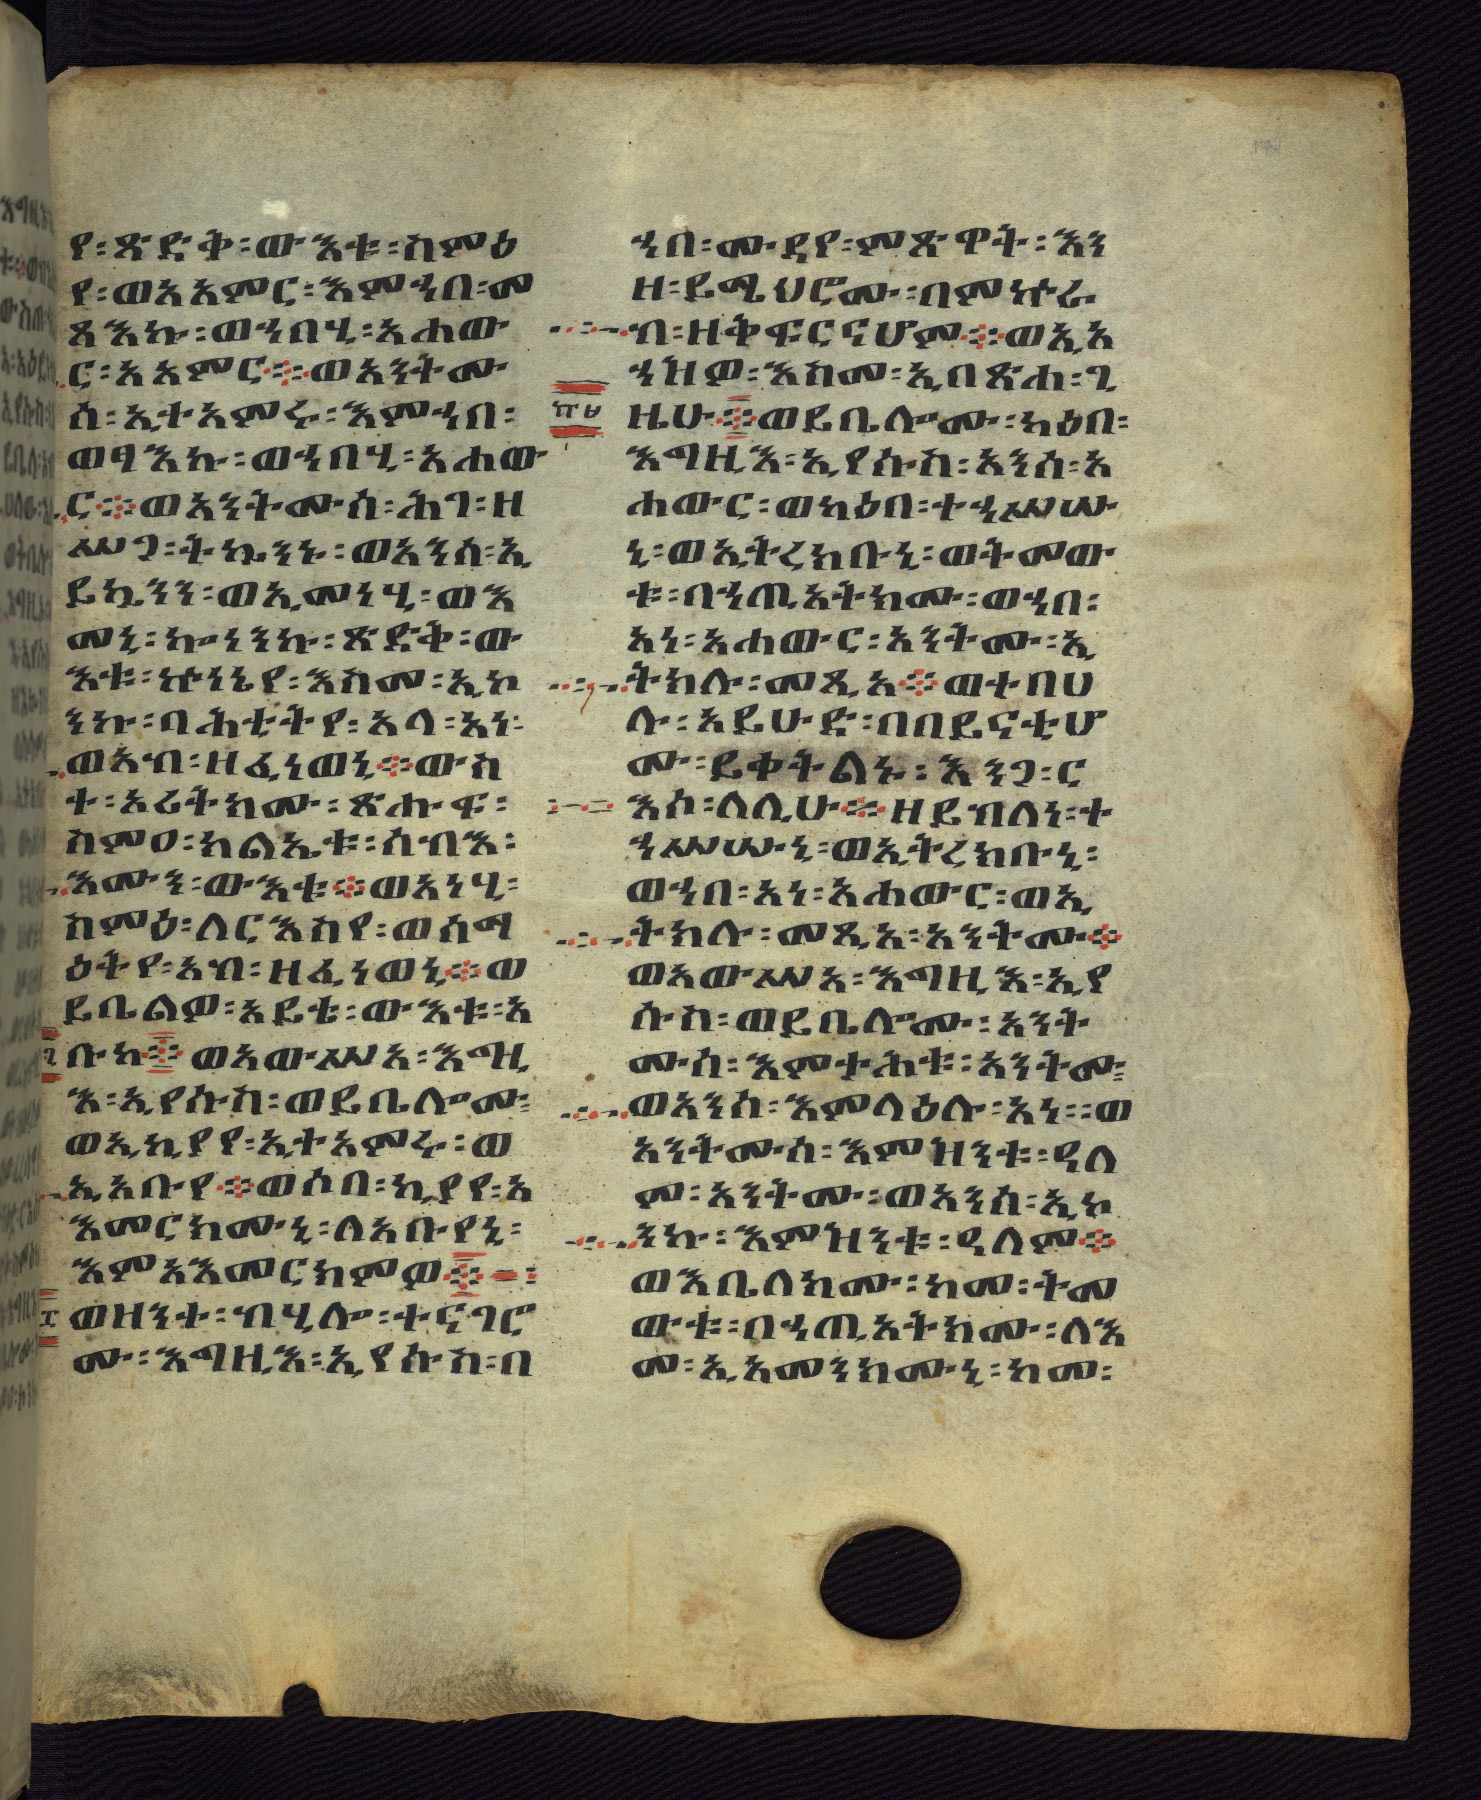 የ፡ጽድቅ፡ውእቱ፡ስምዕ
የ፡ወአአምር፡እምኀበ፡መ
ጻእኩ፡ወኀበሂ፡አሐው
ር፡አአምር፨ወአንትሙ
ሰ፡ኢተአምሩ፡እምኀበ፡
ወፃእኩ፡ወኀበሂ፡አሐው
ር፨ወአንትሙሰ፡ሕገ፡ዘ
ሥጋ፡ትኴንኑ፡ወአንሰ፡ኢ
ይኴንን፡ወኢመነሂ፡ወእ
መኒ፡ኰነንኩ፡ጽድቅ፡ው
እቱ፡ኵነኔየ፡እስመ፡ኢኮ
ንኩ፡ባሕቲትየ፡አላ፡አነ፡
ወአብ፡ዘፈነወኒ፨ውስ
ተ፡ኦሪትክሙ፡ጽሑፍ፡
ስምዐ፡ክልኤቱ፡ሰብእ፡
እሙን፡ውእቱ፨ወአነሂ፡
ስምዕ፡ለርእስየ፡ወሰማ
ዕትየ፡አብ፡ዘፈነወኒ፨ወ
ይቤልዎ፡አይቴ፡ውእቱ፡አ
ቡከ፨ወአውሥአ፡እግዚ
እ፡ኢየሱስ፡ወይቤሎሙ፡
ወኢኪያየ፡ኢተአምሩ፡ወ
ኢአቡየ፨ወሶበ፡ኪያየ፡አ
እመርክሙኒ፡ለአቡየኒ፡
እምአእመርክምዎ፨
ወዘንተ፡ብሂሎ፡ተናገሮ
ሙ፡እግዚእ፡ኢየሱስ፡በ
ኀበ፡ሙዳየ፡ምጽዋት፡እን
ዘ፡ይሜህሮሙ፡በምኵራ
ብ፡ዘቅፍርናሆም፨ወኢአ
ኀዝዎ፡እስመ፡ኢበጽሐ፡ጊ
ዜሁ፨ወይቤሎሙ፡ካዕበ፡
እግዚእ፡ኢየሱስ፡አንሰ፡አ
ሐውር፡ወካዕበ፡ተኀሥሡ
ኒ፡ወኢትረክቡኒ፡ወትመው
ቱ፡በኀጢአትክሙ፡ወኀበ፡
አነ፡አሐውር፡አንትሙ፡ኢ
ትክሉ፡መጺአ፨ወተበህ
ሉ፡አይሁድ፡በበይናቲሆ
ሙ፡ይቀትልኑ፡እንጋ፡ር
እሶ፡ለሊሁ፨ዘይብለነ፡ተ
ኀሥሡኒ፡ወኢትረክቡኒ፡
ወኀበ፡አነ፡አሐውር፡ወኢ
ትክሉ፡መጺአ፡አንትሙ፨
ወአውሥአ፡እግዚእ፡ኢየ
ሱስ፡ወይቤሎሙ፡አንት
ሙሰ፡እምተሕቱ፡አንትሙ፡
ወአንሰ፡እምላዕሉ፡አነ፡፡ወ
አንትሙሰ፡እምዝንቱ፡ዓለ
ም፡አንትሙ፡ወአንሰ፡ኢኮ
ንኩ፡እምዝንቱ፡ዓለም፨
ወእቤለክሙ፡ከመ፡ትመ
ውቱ፡በኀጢአትክሙ፡ለእ
መ፡ኢአመንክሙኒ፡ከመ፡